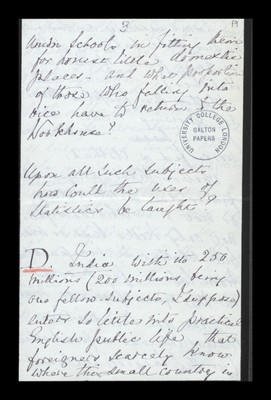 3
Union Schools in fitting them
for honest little domestic
places - and what proportion
of those who falling into
vice have to return to the
Workhouse?
UNIVERSITY COLLEGE LONDON
GALTON
PAPERS
Upon all such subjects
how could the uses of
Statistics be taught?
D. India with its 250
millions (200 millions being
our fellow-subjects, I suppose)
enters so little into practical
English public life that
foreigners scarcely know
where this small country is